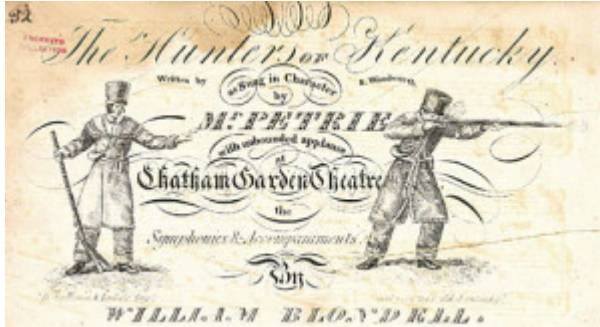 32
The Hunters OF Kentucky.
Written by as Sung in Character S. Woodworth,
by
Mr. PETRIE
with unbounded applause
at
Chatham Garden Theatre
the
Symphonies & Accompaniments.
By
WILLIAM BLONDELL.